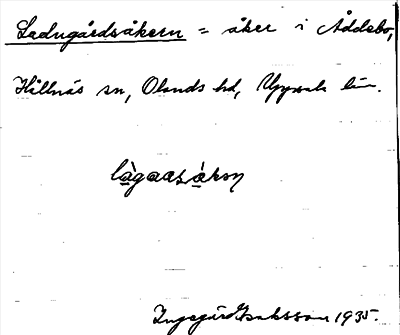 Ladugårdsåkern = åker i Åddebo,
Hållnäs sn, Olands hd, Uppsala län.
lågaasåkŏn
Ingegärd Isaksson 1935.